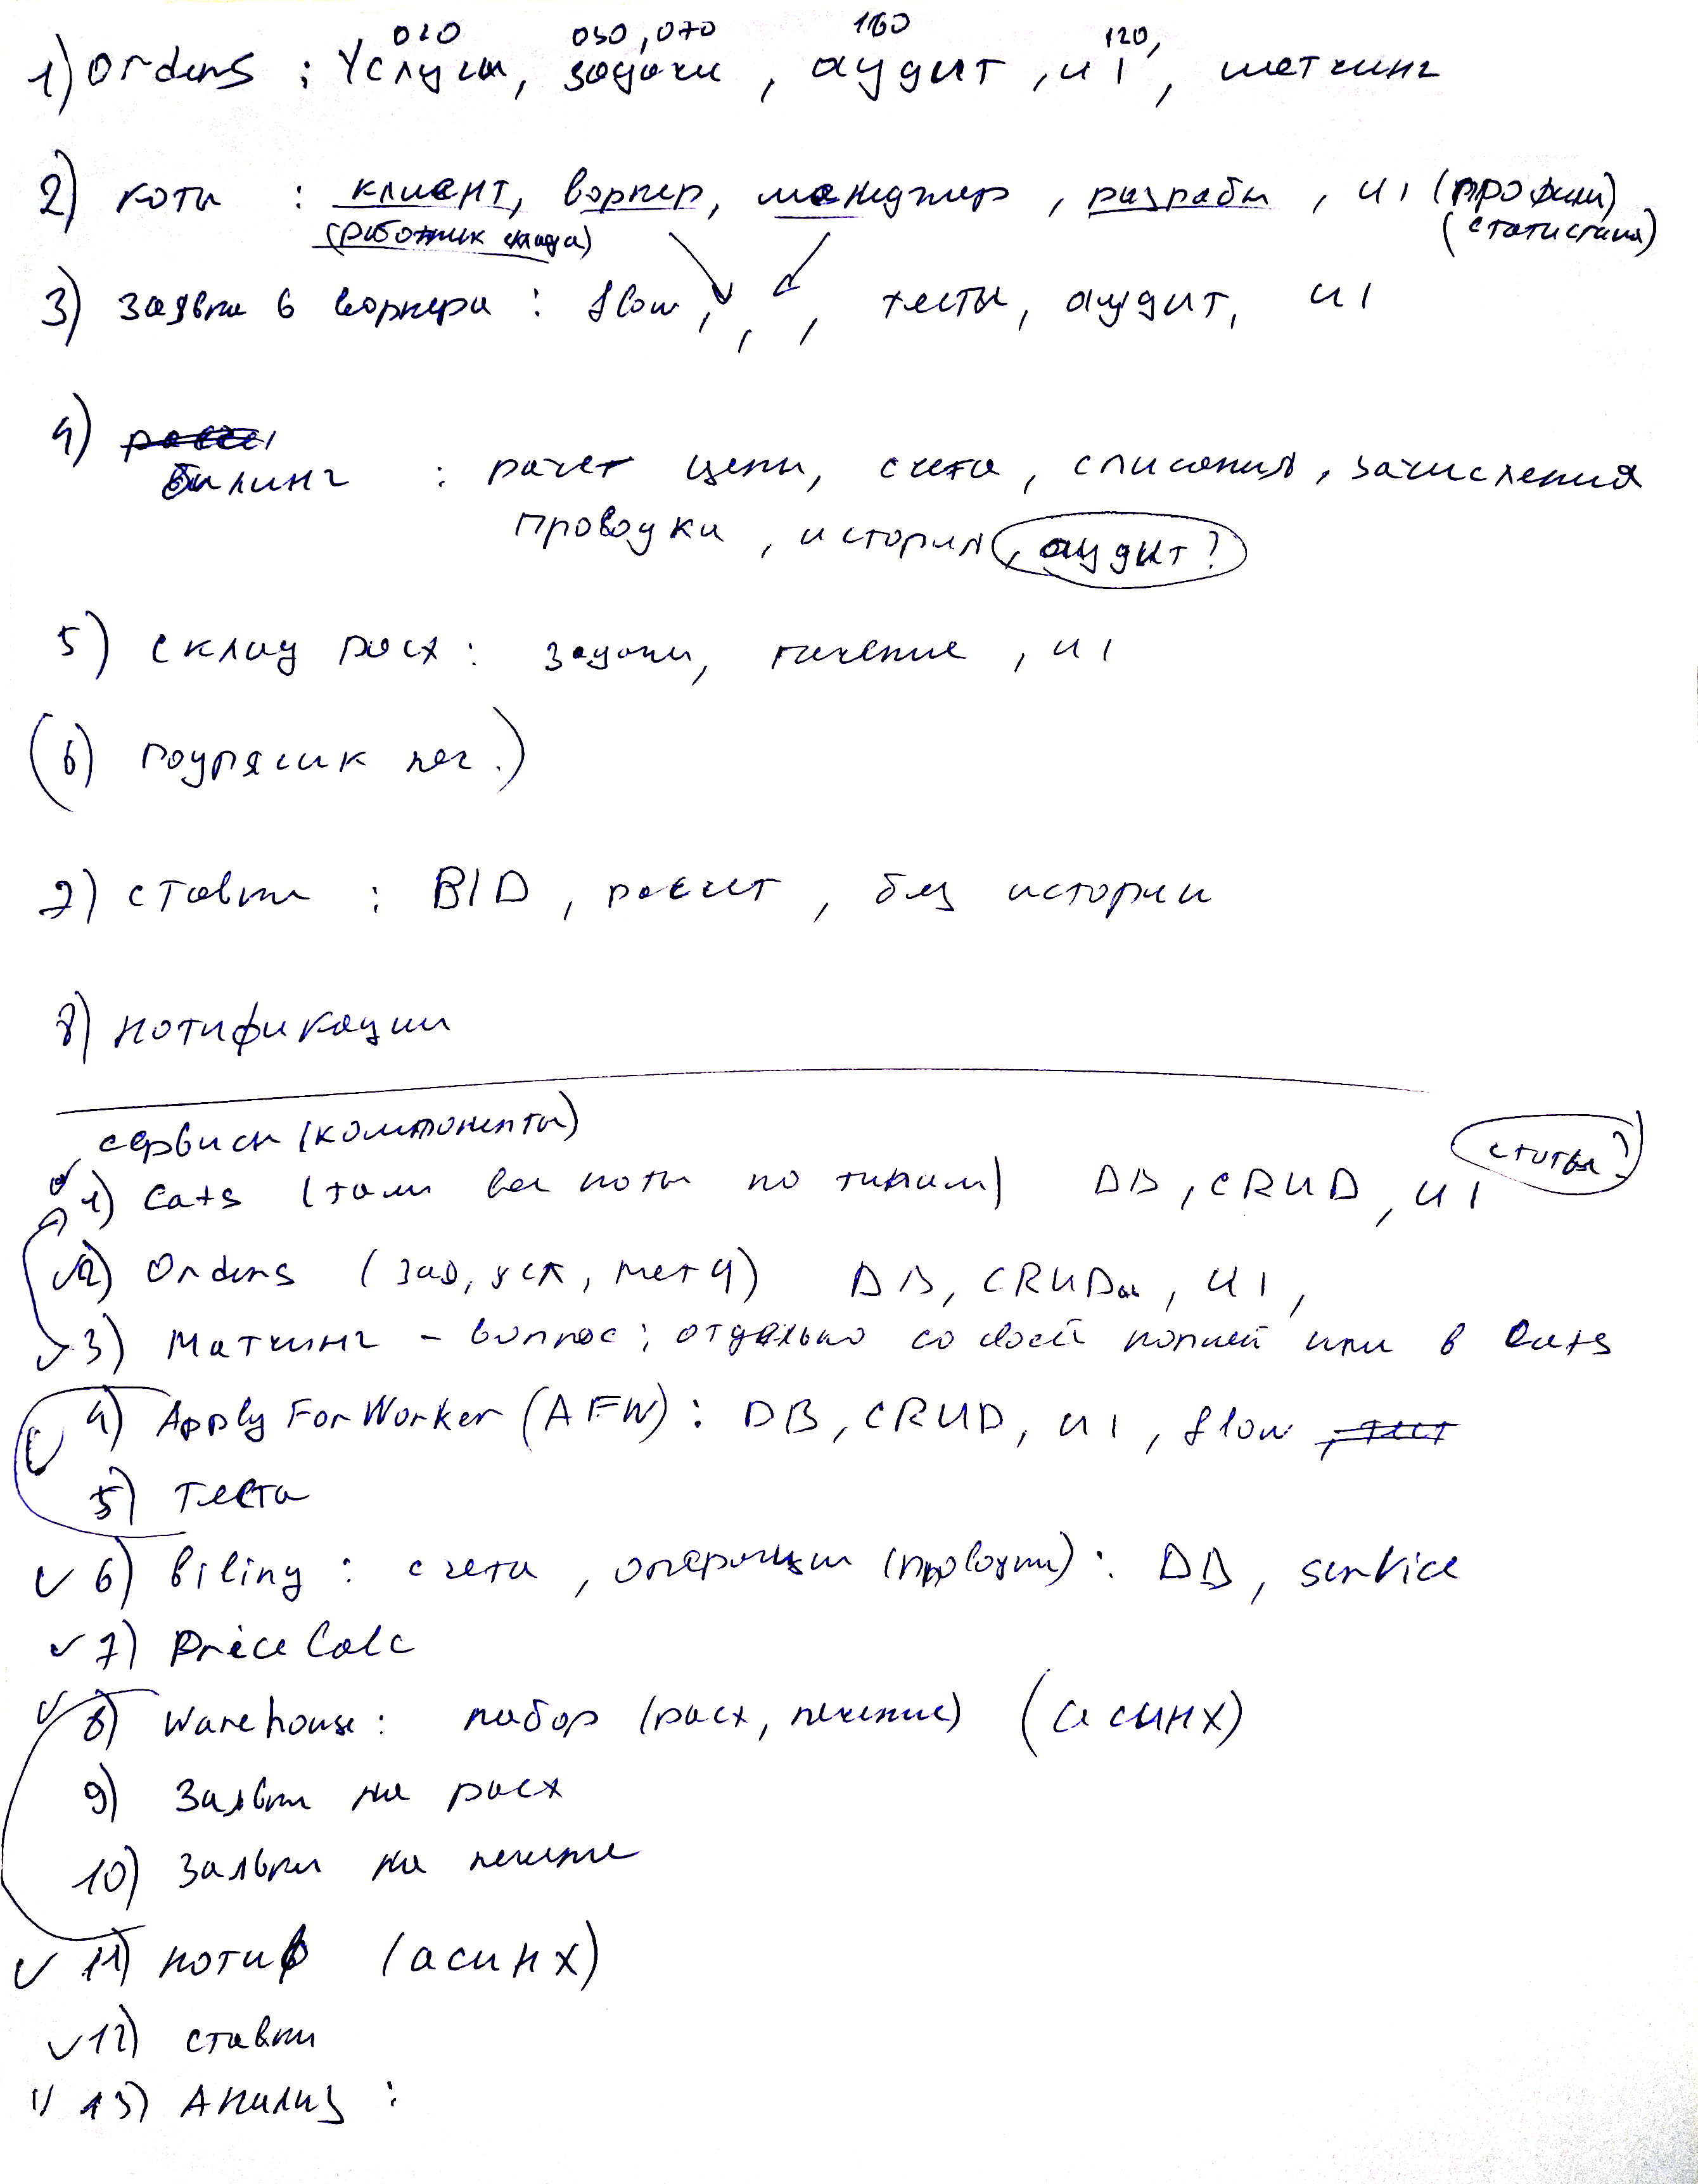 020 030, 070 160 120,
1) Orders : Услуги, задачи, аудит, UI, метчинг
2) коты : клиент, воркер, менеджер, разрабы, UI (профили)
(работник склада) (статистика)
3) Заявки в воркера : flow, , , тесты, аудит, UI
4)
билинг : рачет цены, счета, списания, зачисления
проводки, история, аудит?
5) склад расх : задачи, печенье, UI
(6) подрядчик печ.)
7) ставки : BID, расчет, без истории
8) нотификации
сервисы (компоненты)
статы?
1) Cats (там все коты по типам) DB, CRUD, UI
2) Orders (зад, усл, метч) DB, CRUD, UI,
3) Матчинг - вопрос: отдельно со своей копией или в Cats
4) ApplyForWorker (AFW) : DB, CRUD, UI, flow, тест
5) Тесты
6) biling : счета, операции (проводки) : DB, service
7) PriceCalc
8) Warehouse : набор (расх, печенье) (асинх)
9) Заявки на расх
10) Заявки на печенье
11) нотиф (асинх)
12) ставки
13) Анализ :